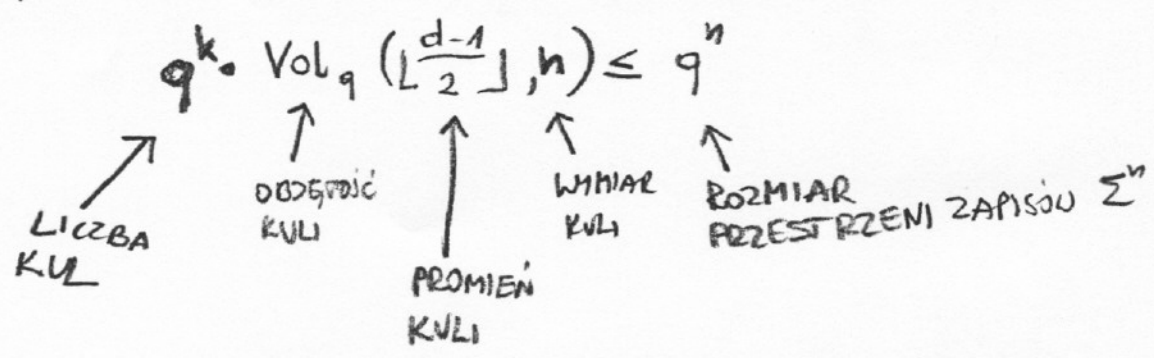 q^k · Vol_q (⌊(d-1)/2⌋, n) ≤ q^n
LICZBA
KUL
OBJĘTOŚĆ
KULI
PROMIEŃ
KULI
WYMIAR
KULI
ROZMIAR
PRZESTRZENI ZAPISÓW Σ^n